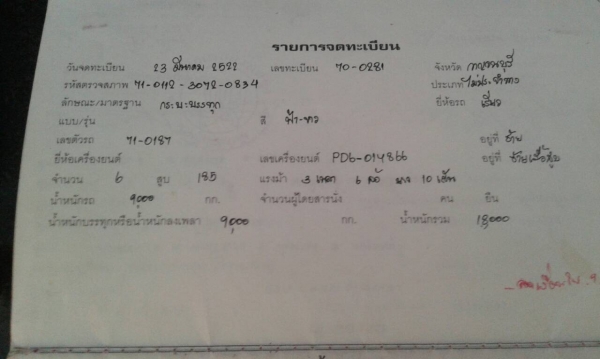 รายการจดทะเบียน
วันจดทะเบียน 23 มีนาคม 2522 เลขทะเบียน 70-0281 จังหวัด กาญจนบุรี
รหัสตรวจสภาพ 71-0112-3072-0834 ประเภท ไม่ประจำทาง
ลักษณะ/มาตรฐาน กระบะบรรทุก ยี่ห้อรถ
แบบ/รุ่น สี ฟ้า-ขาว
เลขตัวรถ 71-0187 อยู่ที่ ซ้าย
ยี่ห้อเครื่องยนต์ เลขเครื่องยนต์ PD6-014866 อยู่ที่
จำนวน 6 สูบ 185 แรงม้า 3 เพลา 6 ล้อ ยาง 10 เส้น
น้ำหนักรถ 9,000 กก. จำนวนผู้โดยสารนั่ง คน ยืน
น้ำหนักบรรทุกหรือน้ำหนักลงเพลา 9,000 กก. น้ำหนักรวม 18,000